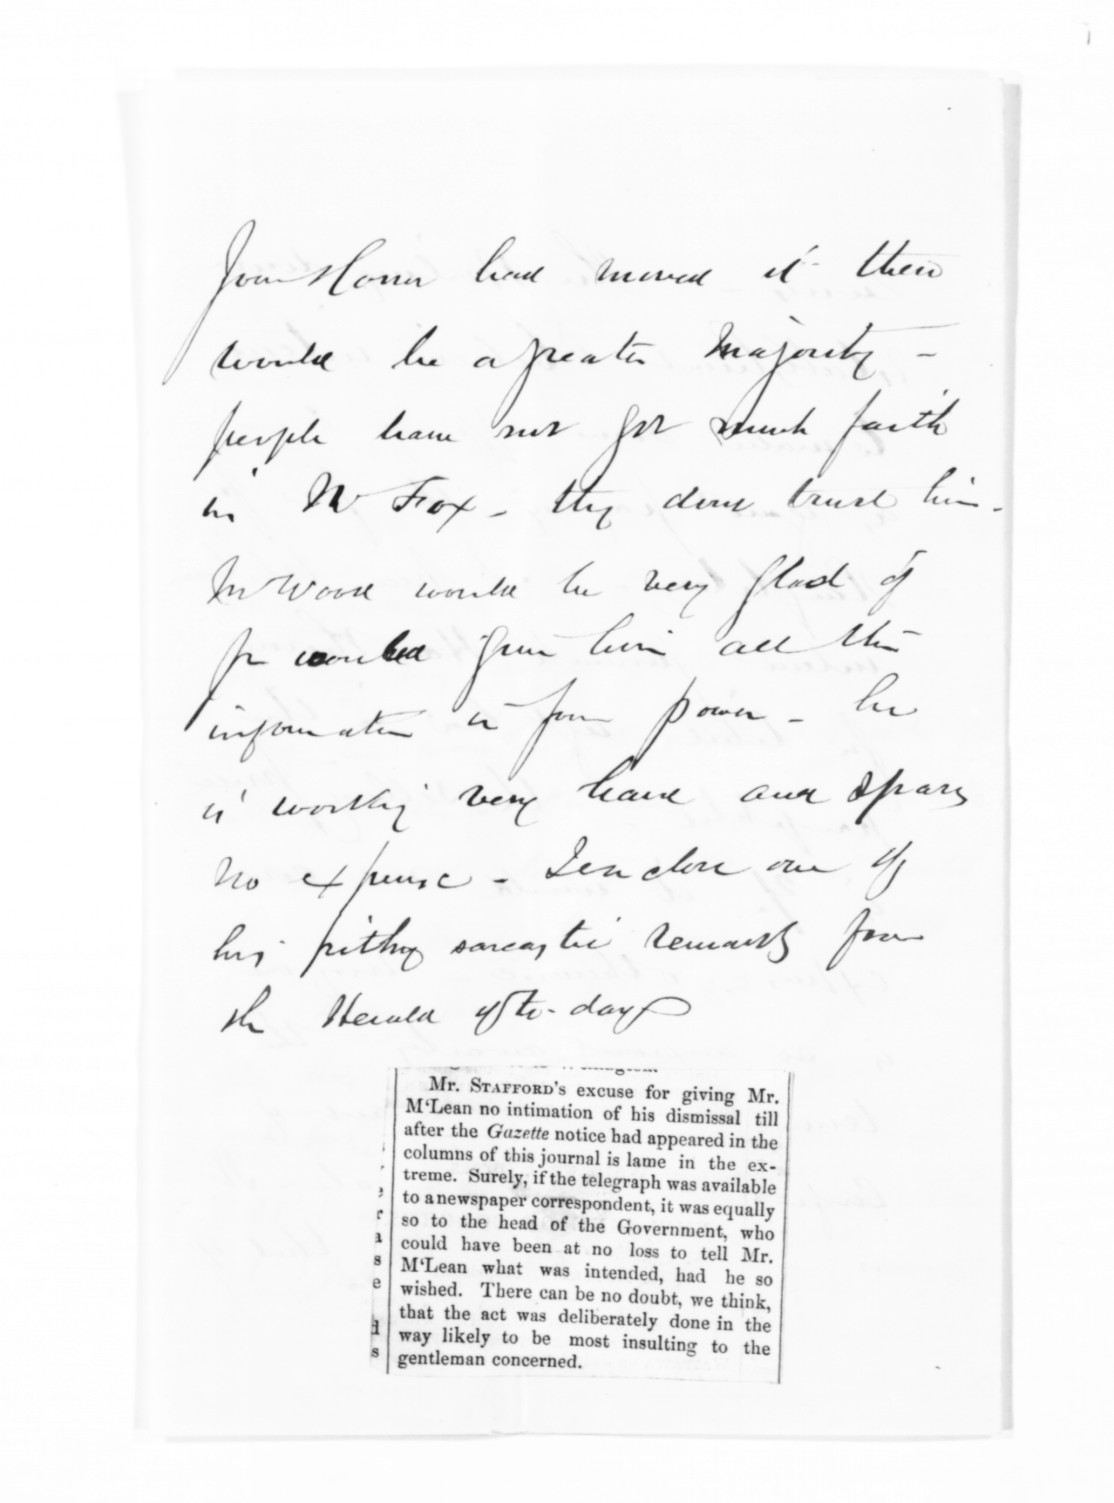 Your Honor had moved it there
would be a greater Majority -
people have not got much faith
in Mr Fox - they dont trust him -
Mr Wood would be very glad if
you would give him all the
information in your power - he
is working very hard and spares
no expense - I enclose one of
his pithy sarcastic remarks from
the Herald of to-day
Mr. STAFFORD'S excuse for giving Mr.
M'Lean no intimation of his dismissal till
after the Gazette notice had appeared in the
columns of this journal is lame in the ex-
treme. Surely, if the telegraph was available
to a newspaper correspondent, it was equally
so to the head of the Government, who
could have been at no loss to tell Mr.
M'Lean what was intended, had he so
wished. There can be no doubt, we think,
that the act was deliberately done in the
way likely to be most insulting to the
gentleman concerned.